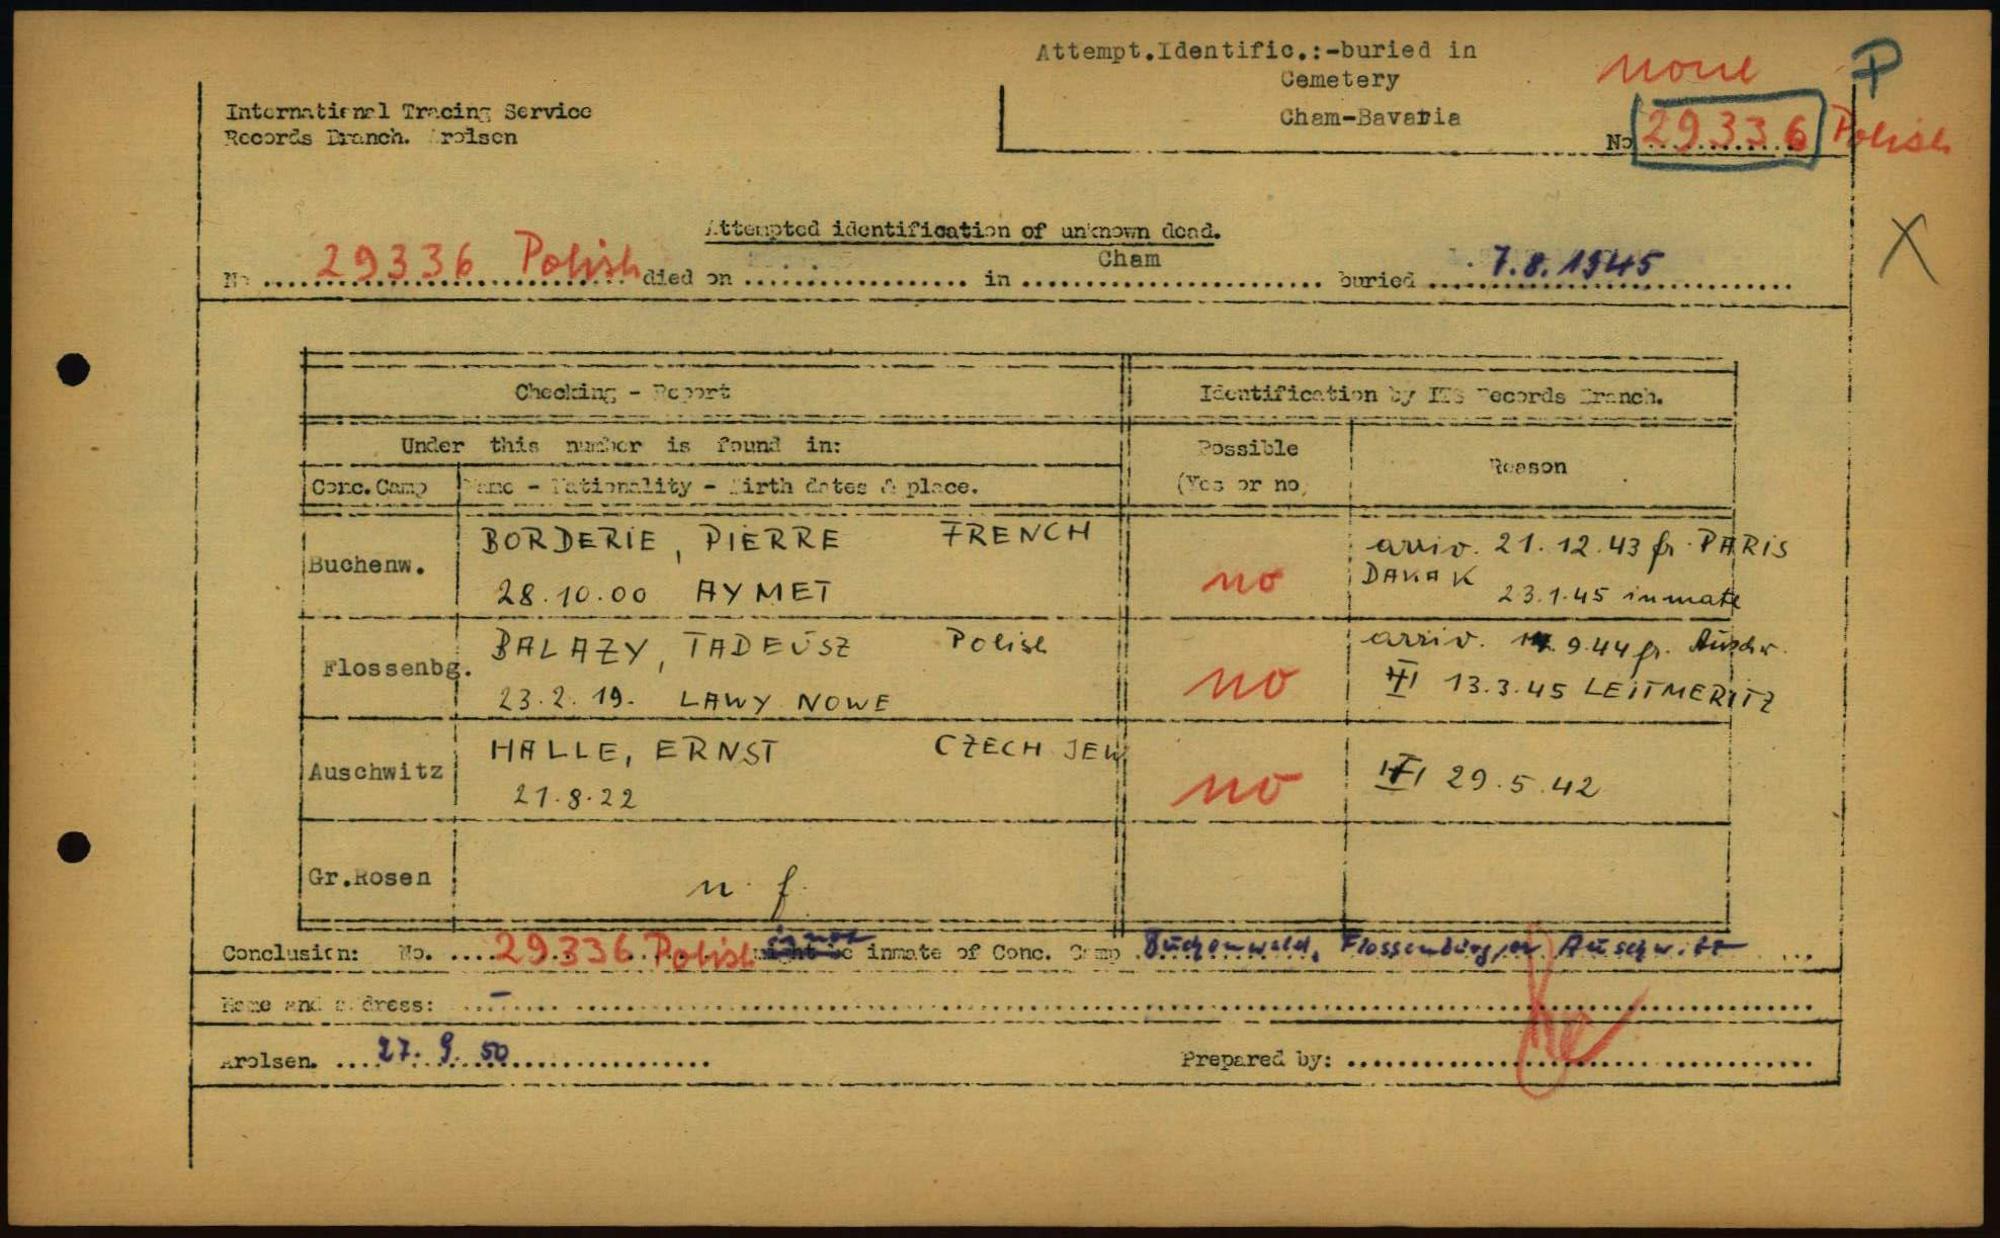 Attempt.Identific.:-buried in
Cemetery
Cham-Bavaria
none
P
No 29336 Polish
International Tracing Service
Records Branch. Arolsen
X
Attempted identification of unknown dead.
No 29336 Polish died on in Cham buried 7.8.1945
Checking - Report
Identification by ITS Records Branch.
Under this number is found in:
Possible
(Yes or no)
Reason
Conc.Camp Name - Nationality - Birth dates & place.
BORDERIE, PIERRE FRENCH
Buchenw.
28.10.00 AYMET
no
arriv. 21.12.43 fr. PARIS
23.1.45 inmate
BALAZY, TADEUSZ Polish
Flossenbg.
23.2.19. LAWY NOWE
no
arriv. 9.44 fr. Auschw.
13.3.45 LEITMERITZ
HALLE, ERNST CZECH JEW
Auschwitz
21.8.22
no
29.5.42
Gr.Rosen n. f.
Conclusion: No. 29336 Polish is not inmate of Conc. Camp Buchenwald, Flossenbürg, or Auschwitz
Name and address: –
Arolsen. 27. 9. 50
Prepared by: